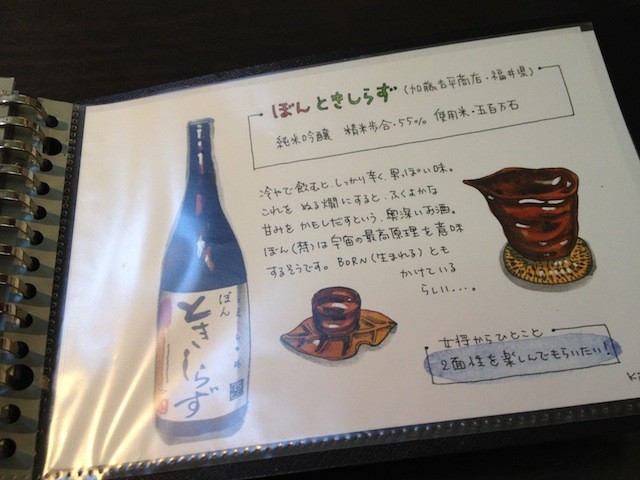 ぼん ときしらず (加藤吉平商店・福井県)
純米吟醸 精米歩合・55% 使用米・五百万石
冷やで飲むと、しっかり辛く、男っぽい味。
これを ぬる燗にすると、ふくよかな
甘みを かもしだすという、奥深いお酒。
ぼん(梵)は宇宙の最高原理を意味
するそうです。BORN(生まれる)とも
かけている
らしい・・・。
女将からひとこと
2面性を楽しんでもらいたい!
ぼん
ときしらず